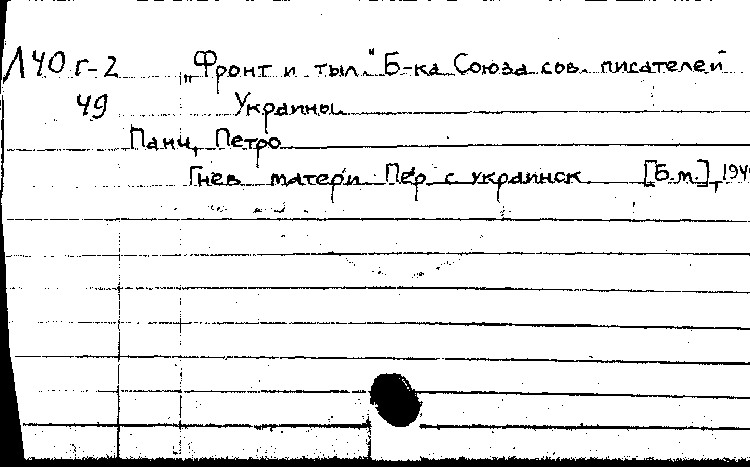 Л40г-2 „Фронт и тыл." Б-ка Союза сов. писателей
49 Украины.
Панч, Петро
Гнев матери. Пер. с украинск. [Б.м.],